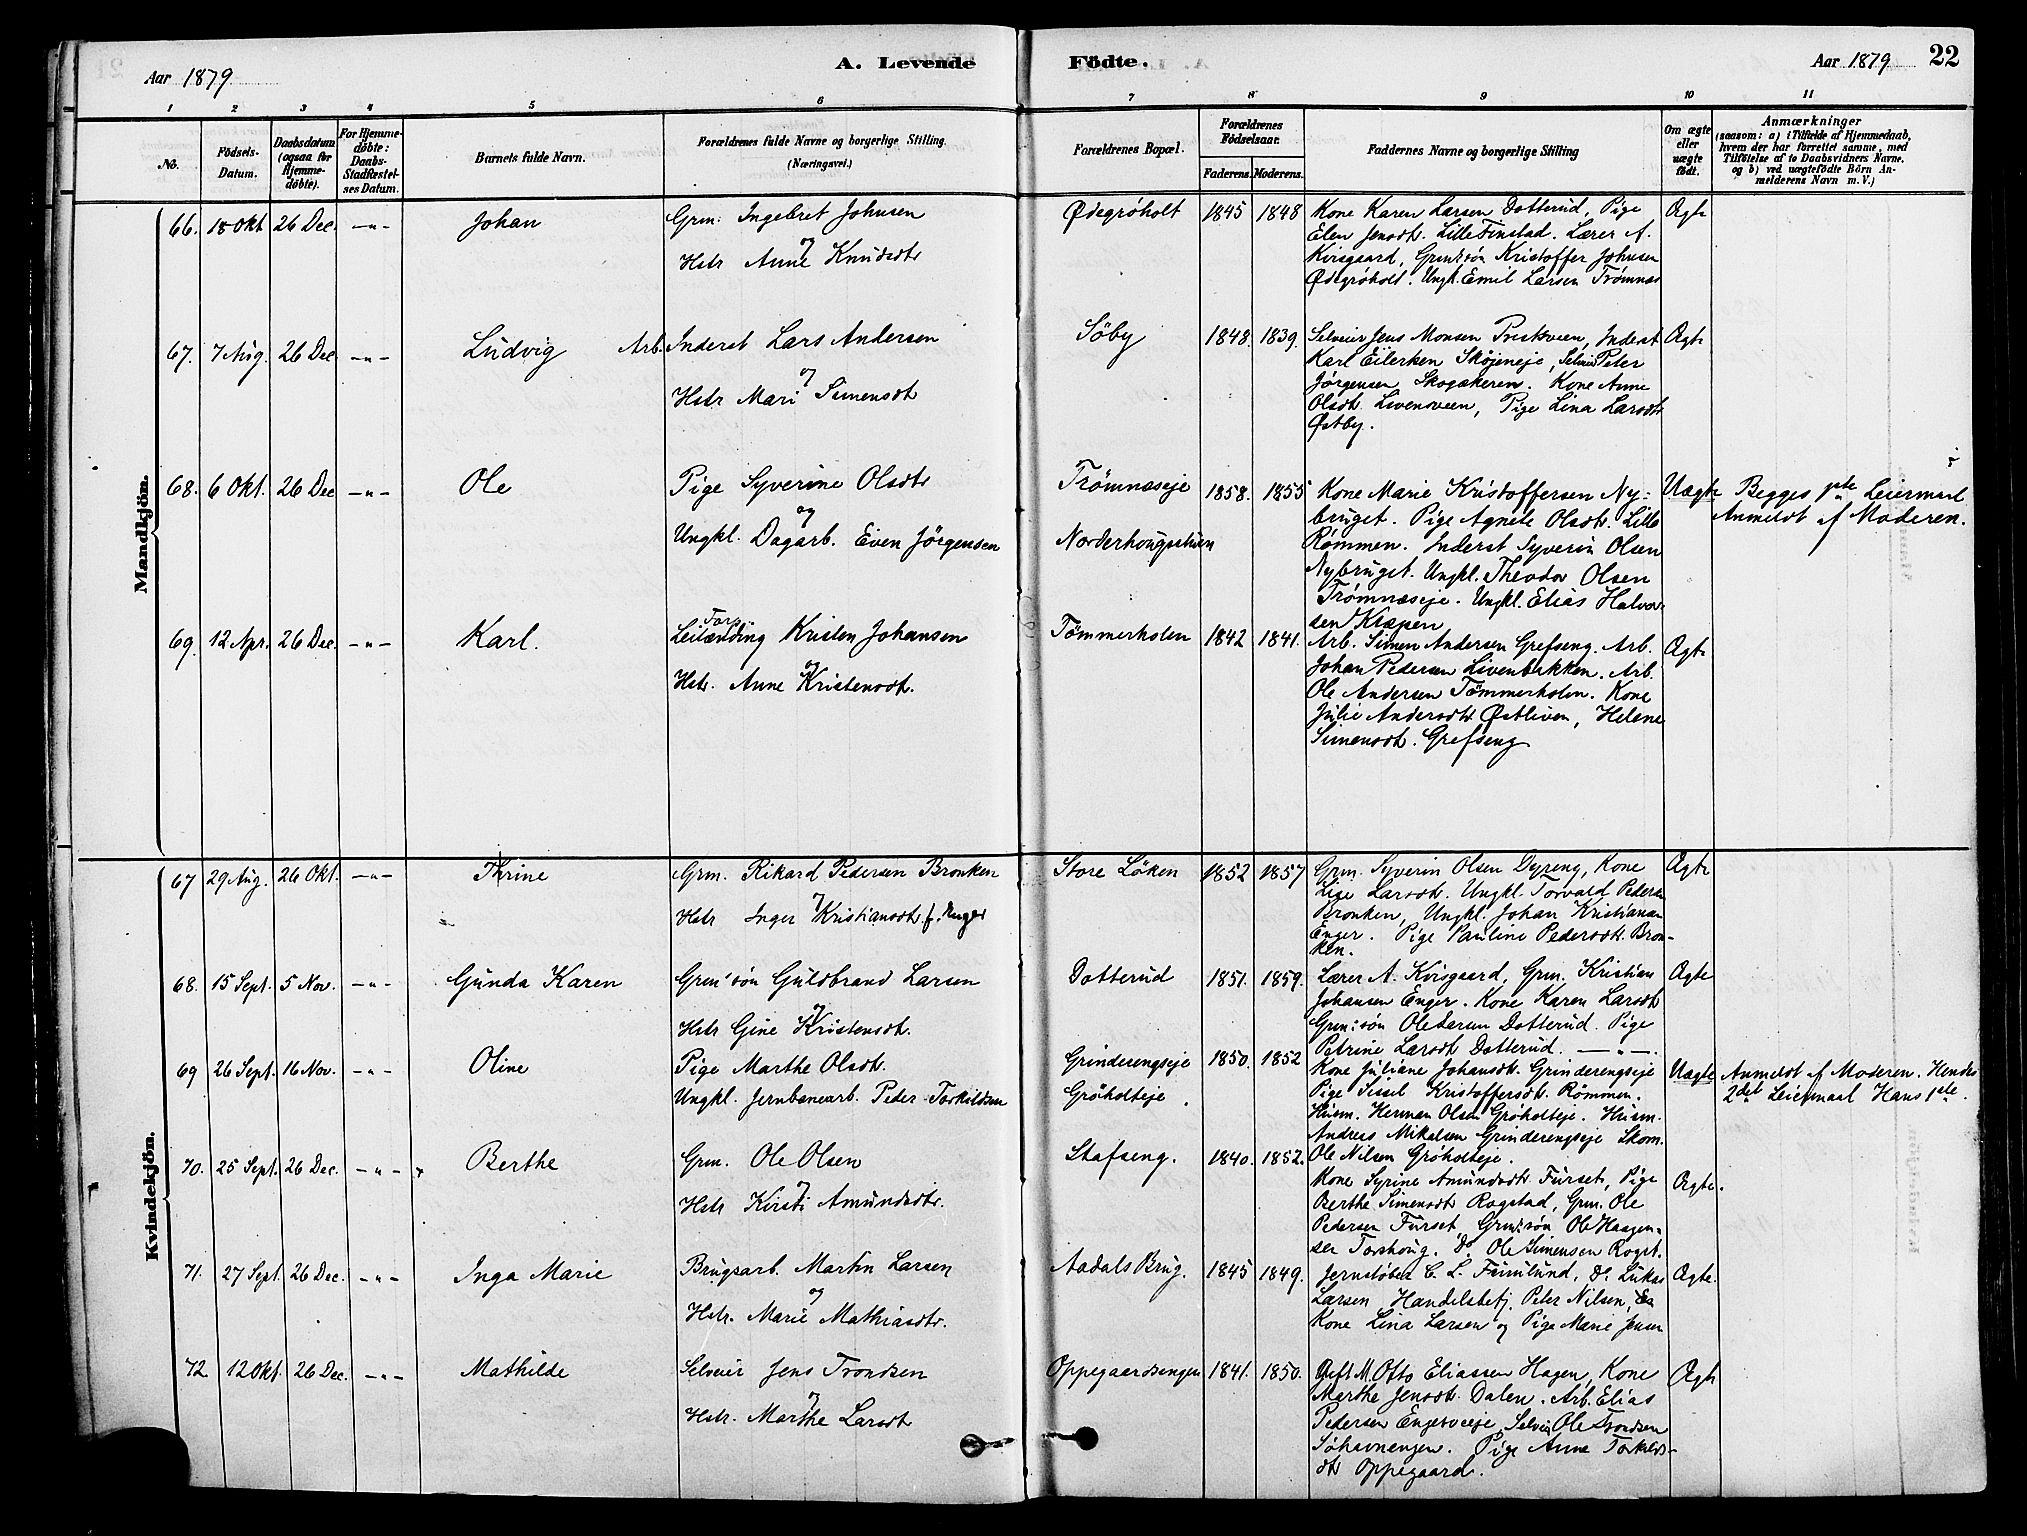 Aar 1879
A. Levende Födte.
Aar 1879
22
1 2 3 4 5 6 7 8 9 10 11
No.
Födsels-
Datum.
Daabsdatum
(ogsaa for
Hjemme-
döbte).
For Hjemme-
döbte:
Daabs-
Stadfæstel-
ses Datum.
Barnets fulde Navn.
Forældrenes fulde Navne og borgerlige Stilling.
(Næringsvei.)
Forældrenes Bopæl.
Forældrenes
Födselsaar.
Faderens. Moderens.
Faddernes Navne og borgerlige Stilling
Om ægte
eller
uægte
født.
Anmærkninger
(saasom: a) i Tilfælde af Hjemmedaab,
hvem der har forrettet samme, med
Tilföielse af to Daabsvidners Navne,
og b) ved uægtefödte Börn An-
melderens Navn m. V.)
Mandkjön.
66. 18 Okt 26 Dec. -"- Johan
Grm. Ingebret Johnsen
og
Hstr Anne Knudsdtr
Ødegröholt 1845 1848
Kone Karen Larsen Dotterud, Pige
Elen Jensdt. Lille Finstad. Lærer A.
Kvisgaard, Grm:sön Kristoffer Johnsen
Ødegröholt. Ungk. Emil Larsen Trömnæs
Ægte
67. 7 Aug. 26 Dec -"- Ludvig
Arb. Inderst Lars Andersen
og
Hstr Mari Simensdt
Söby 1848. 1839.
Selveier Jens Monsen Prestsveen, Inderst
Karl Eilertsen Sköieneje, Selveier Peter
Jörgensen Skogakeren. Kone Anne
Olsdt. Livensveen, Pige Lina Larsdt
Østby.
Ægte
68. 6 Okt. 26 Dec -"- Ole
Pige Syverine Olsdtr
og
Ungkl. Dagarb. Even Jörgensen
Trömnæseje
Norderhougsstuen
1858. 1855
Kone Marie Kristoffersen Ny-
bruget. Pige Agnete Olsdt. Lille
Rømmen. Inderst Syverin Olsen
Nybruget. Ungkl. Theodor Olsen
Trömnæseje. Ungkl. Elias Halvor-
sen Kløpen
Uægte
Begges 1ste Leiermaal
Anmeldt af Moderen.
69. 12 Apr. 26 Dec. -"- Karl.
Leilænding Kristen Johansen
og
Hstr. Anne Kristensdt.
Tömmerholen 1842 1841.
Arb. Simen Andersen Grefseng. Arb.
Johan Pedersen Livenbakken. Arb.
Ole Andersen Tömmerholen. Kone
Julie Andersdtr Østliven, Helene
Simensdt. Grefseng
Ægte
Kvindekjön.
67 29 Aug. 26 Okt. -"- Thrine
Grm. Rikard Pedersen Bronken
og
Hstr Inger Kristiansdt. f. Enger
Store Löken 1852 1857
Grm. Syverin Olsen Dyreng, Kone
Lise Larsdt. Ungkl. Torvald Pedersen
Bronken, Ungkl. Johan Kristiansen
Enger. Pige Pauline Pedersdt. Bron-
ken.
Ægte
68. 15 Sept. 5 Nov. -"- Gunda Karen
Grm:sön Guldbrand Larsen
og
Hstr Gine Kristensdt.
Dotterud 1851. 1859.
Lærer A. Kvisgaard, Grm. Kristian
Johansen Enger. Kone Karen Larsdt
Grm:sön Ole Larsen Dotterud. Pige
Petrine Larsdt Dotterud. -"-.
Ægte
69 26 Sept. 16 Nov. -"- Oline
Pige Marthe Olsdt.
Ungkl. Jernbanearb. Peder Torkildsen
Grinderengseje
Gröholteje
1850. 1852
Kone Juliane Johansdt. Grinderengseje
Pige Sissel Kristoffersdt. Römmen.
Husm. Herman Olsen Gröholteje. Husm.
Andreas Mikalsen Grinderengseje Skom.
Ole Nilsen Gröholteje.
Uægte
Anmeldt af Moderen. Hendes
2det Leiermaal Hans 1ste.
70. 25 Sept. 26 Dec. -"- Berthe
Grm. Ole Olsen
og
Hstr Kirsti Amundsdtr.
Stafseng. 1840. 1852.
Kone Syrine Amundsdt. Furset, Pige
Berthe Simensdt Rogstad, Grm. Ole
Pedersen Furset, Grm:sön Ole Haagen-
sen Torshoug. Do Ole Simensen Rogst.
Ægte.
71. 27 Sept. 26 Dec. -"- Inga Marie
Brugsarb. Martin Larsen
og
Hstr. Marie Mathiasdtr.
Aadals Brug. 1845 1849.
Jernstöber C. L. Fimlund, Do Lukas
Larsen Handelsbetj. Peter Nilsen,
Kone Lina Larsen og Pige Marie Jensen
Ægte.
72 12 Okt. 26 Dec. -"- Mathilde
Selveier Jens Trondsen
og
Hstr. Marthe Larsdt
Oppegaardsengen 1841. 1850.
Gift M. Otto Eliassen Hagen, Kone
Marthe Jensdt. Dalen. Arb. Elias
Pedersen Engerveje, Selvei Ole Trondsen
Söhavnengen. Pige Anne Torkels-
dt Oppegaard.
Ægte